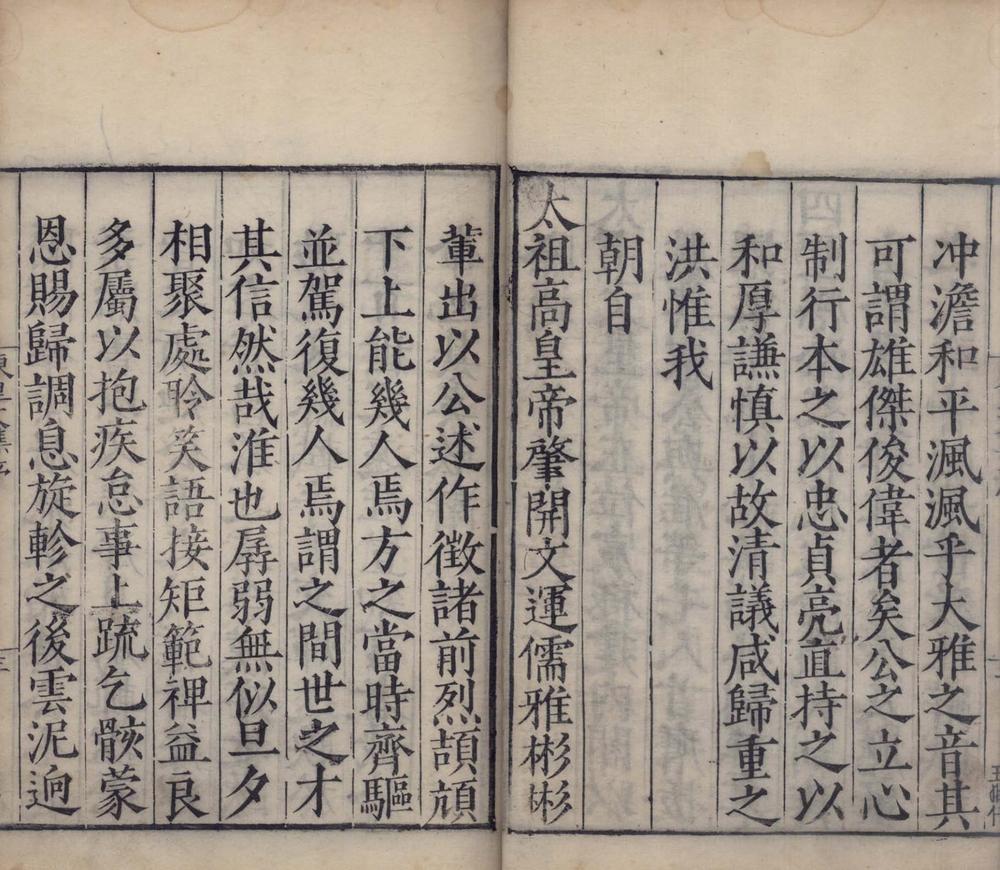 冲澹和平渢渢乎大雅之音其
可謂雄傑俊偉者矣公之立心
制行本之以忠貞亮直持之以
和厚謙慎以故清議咸歸重之
洪惟我
朝自
太祖高皇帝肇開文運儒雅彬彬
輩出以公述作徵諸前烈頡頏
下上能幾人焉方之當時齊驅
並駕復幾人焉謂之間世之才
其信然哉淮也孱弱無似旦夕
相聚處聆笑語接矩範裨益良
多屬以抱疾怠事上疏乞骸蒙
恩賜歸調息旋軫之後雲泥逈